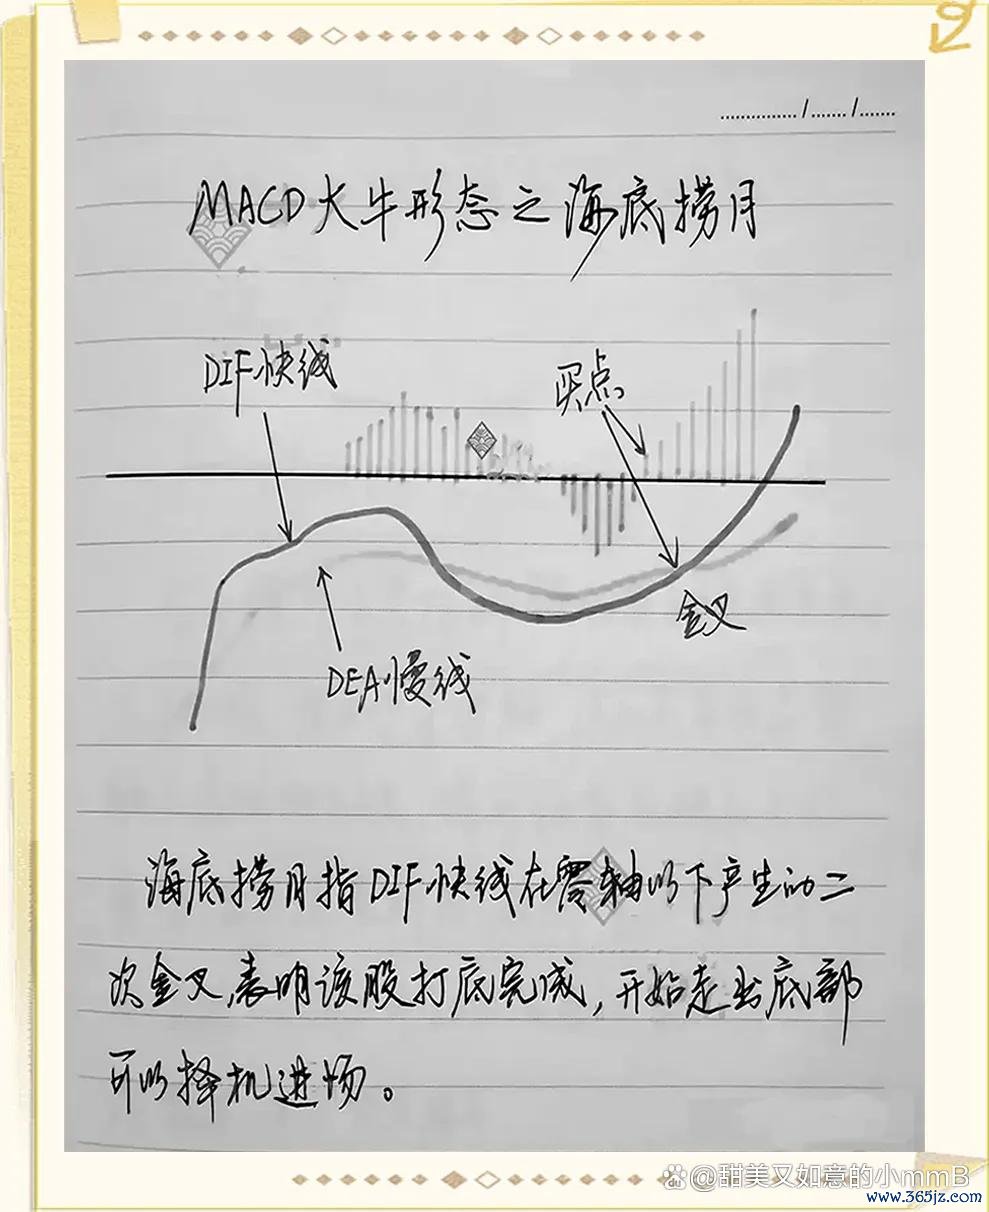 ............../......./.......
MACD大牛形态之海底捞月
DIF快线
买点
金叉
DEA慢线
海底捞月指DIF快线在零轴以下产生的二
次金叉,表明该股打底完成,开始走出底部
可以择机进场。
@甜美又如意的小mmB
www.365jz.com